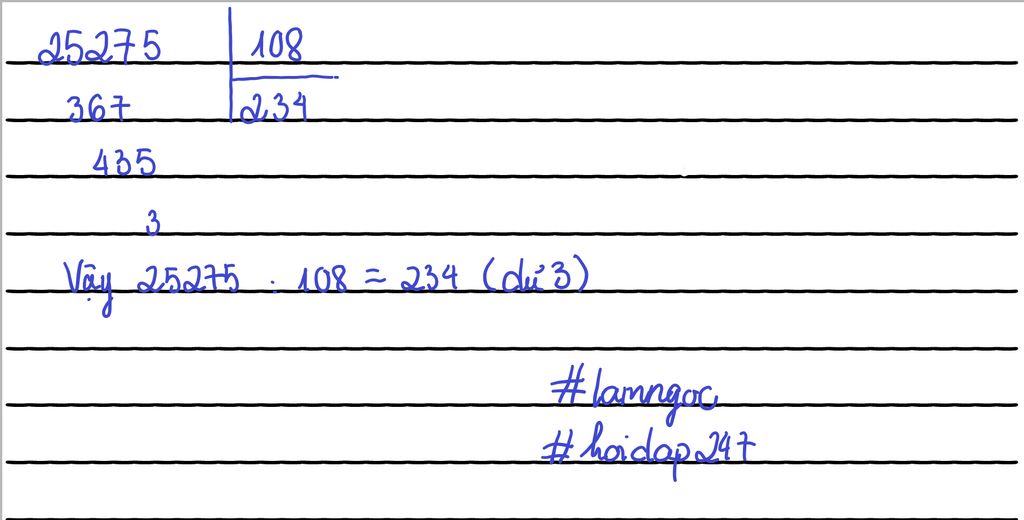 25275 | 108
367 | 234
435
3
Vậy 25275 : 108 = 234 (dư 3)
#lamngoc
#hoidap247